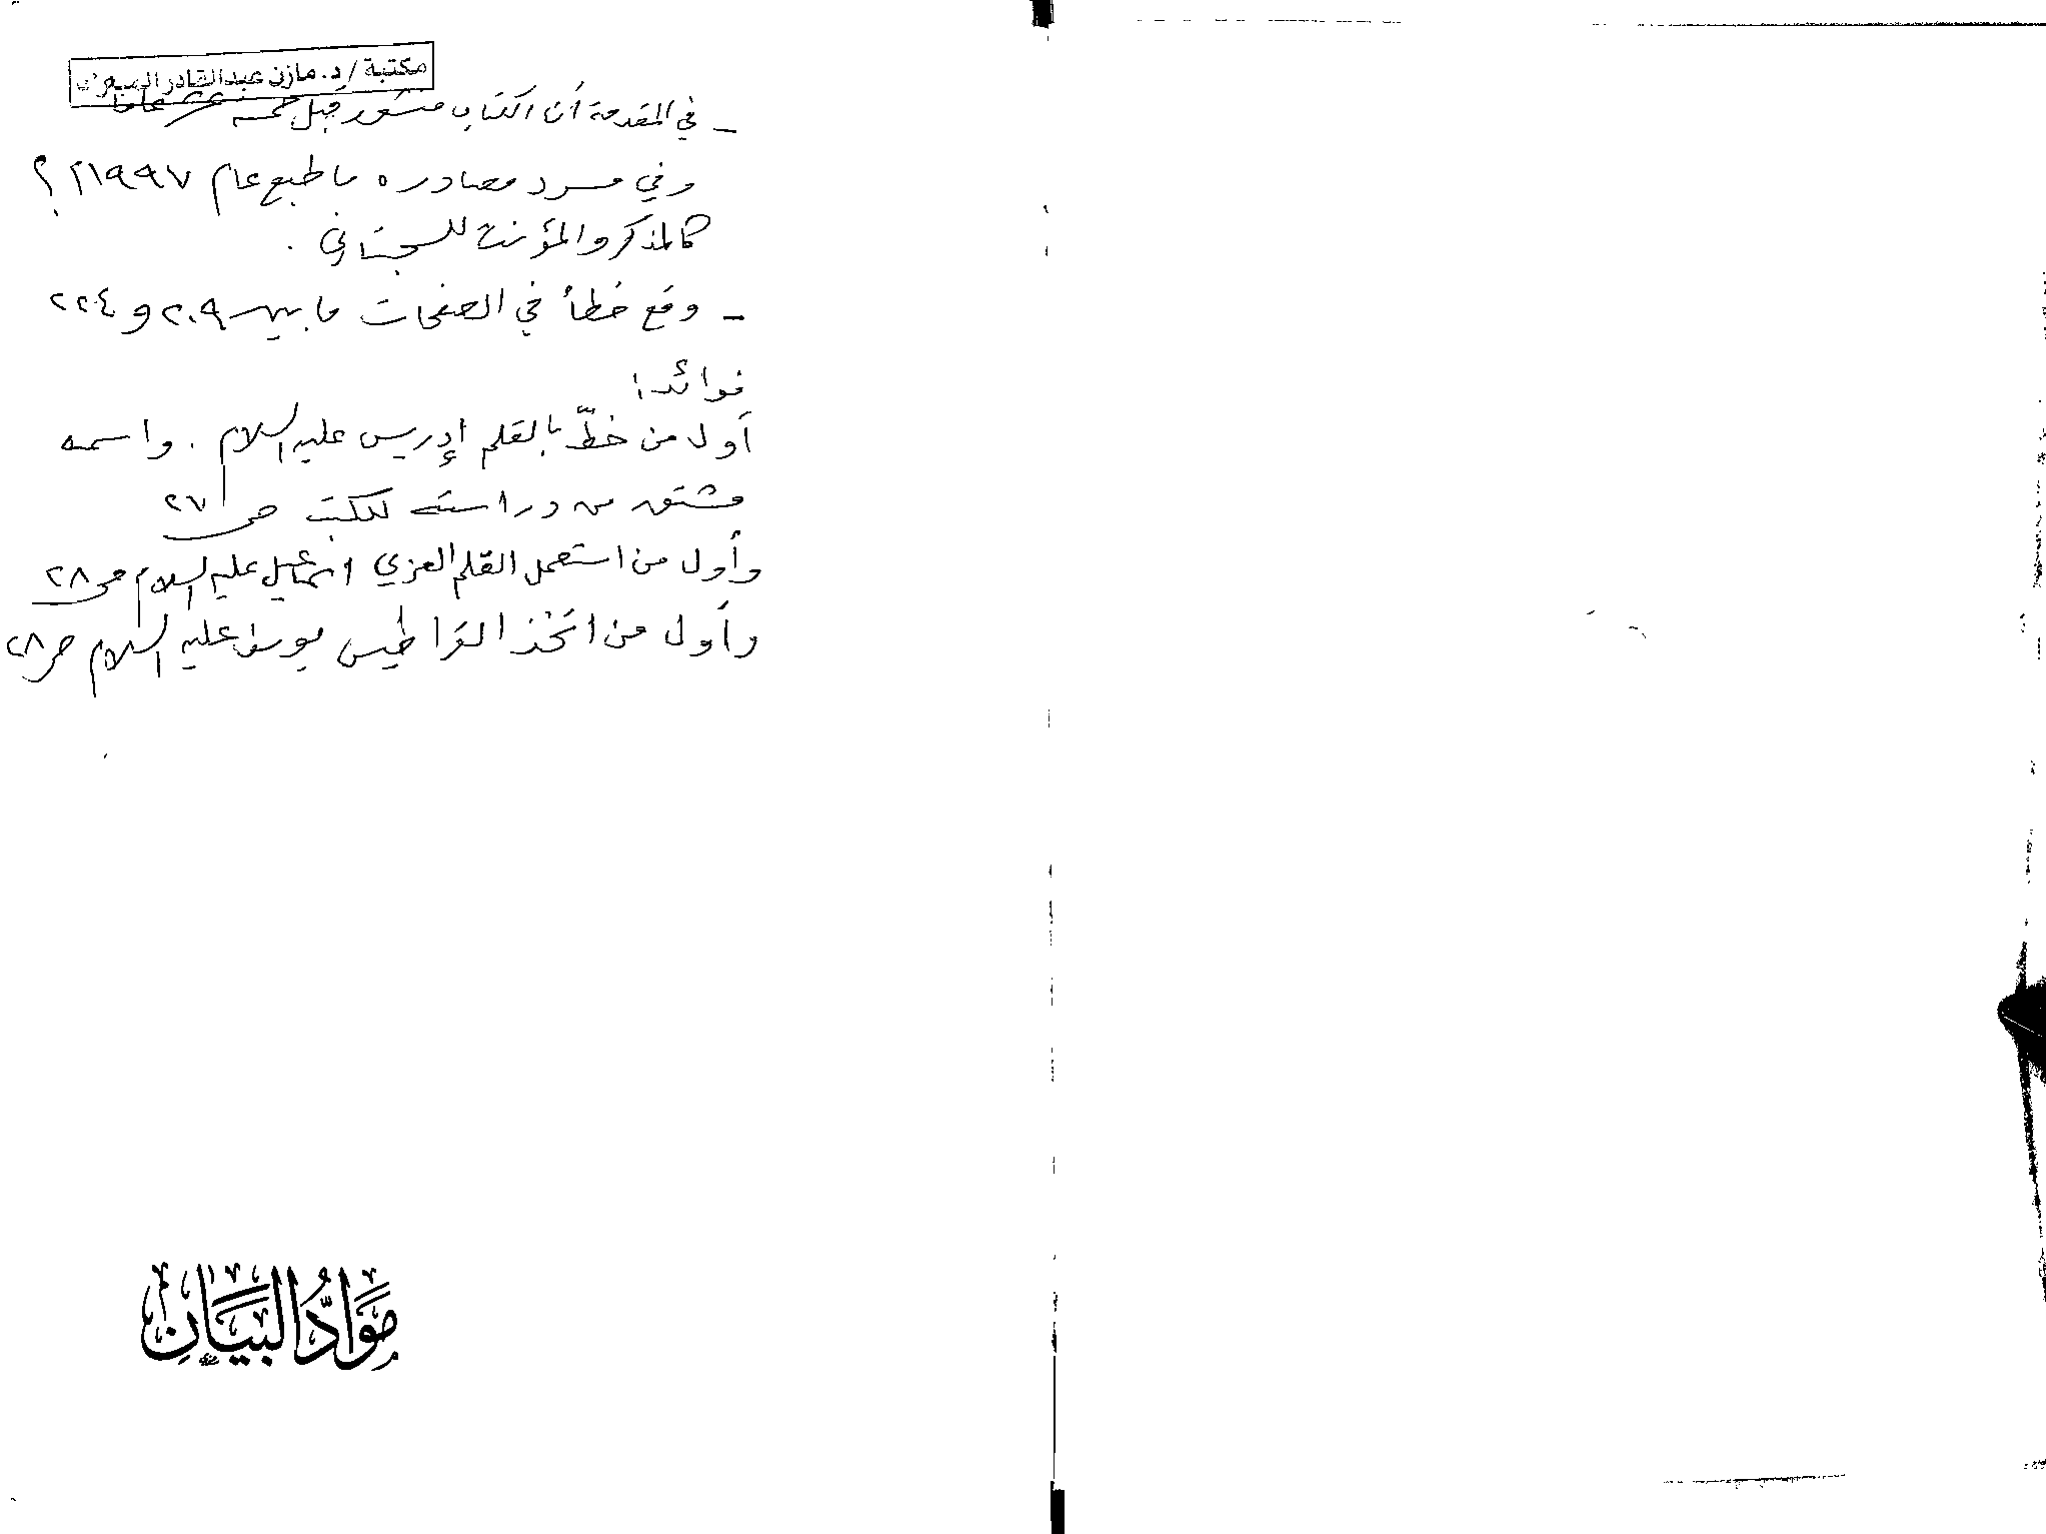 مكتبة / د. مازن عبدالقادر المبارك
- في المقدمة أن الكتاب منشور قبل خمسة عشر عاما
وفي مسرد مصادره ما طبع عام ١٩٩٧م ؟!
كالمذكر والمؤنث للسجستاني .
- وقع خطأ في الصفحات ما بين ٢٠٩ و ٢٢٤
فوائد :
أول من خطّ بالقلم إدريس عليه السلام . واسمه
مشتق من دراسته للكتب ص ٢٧
وأول من استعمل القلم العربي اسماعيل عليه السلام ص ٢٨
وأول من اتخذ القراطيس يوسف عليه السلام ص ٢٨
مَوَادُّ البَيَانِ